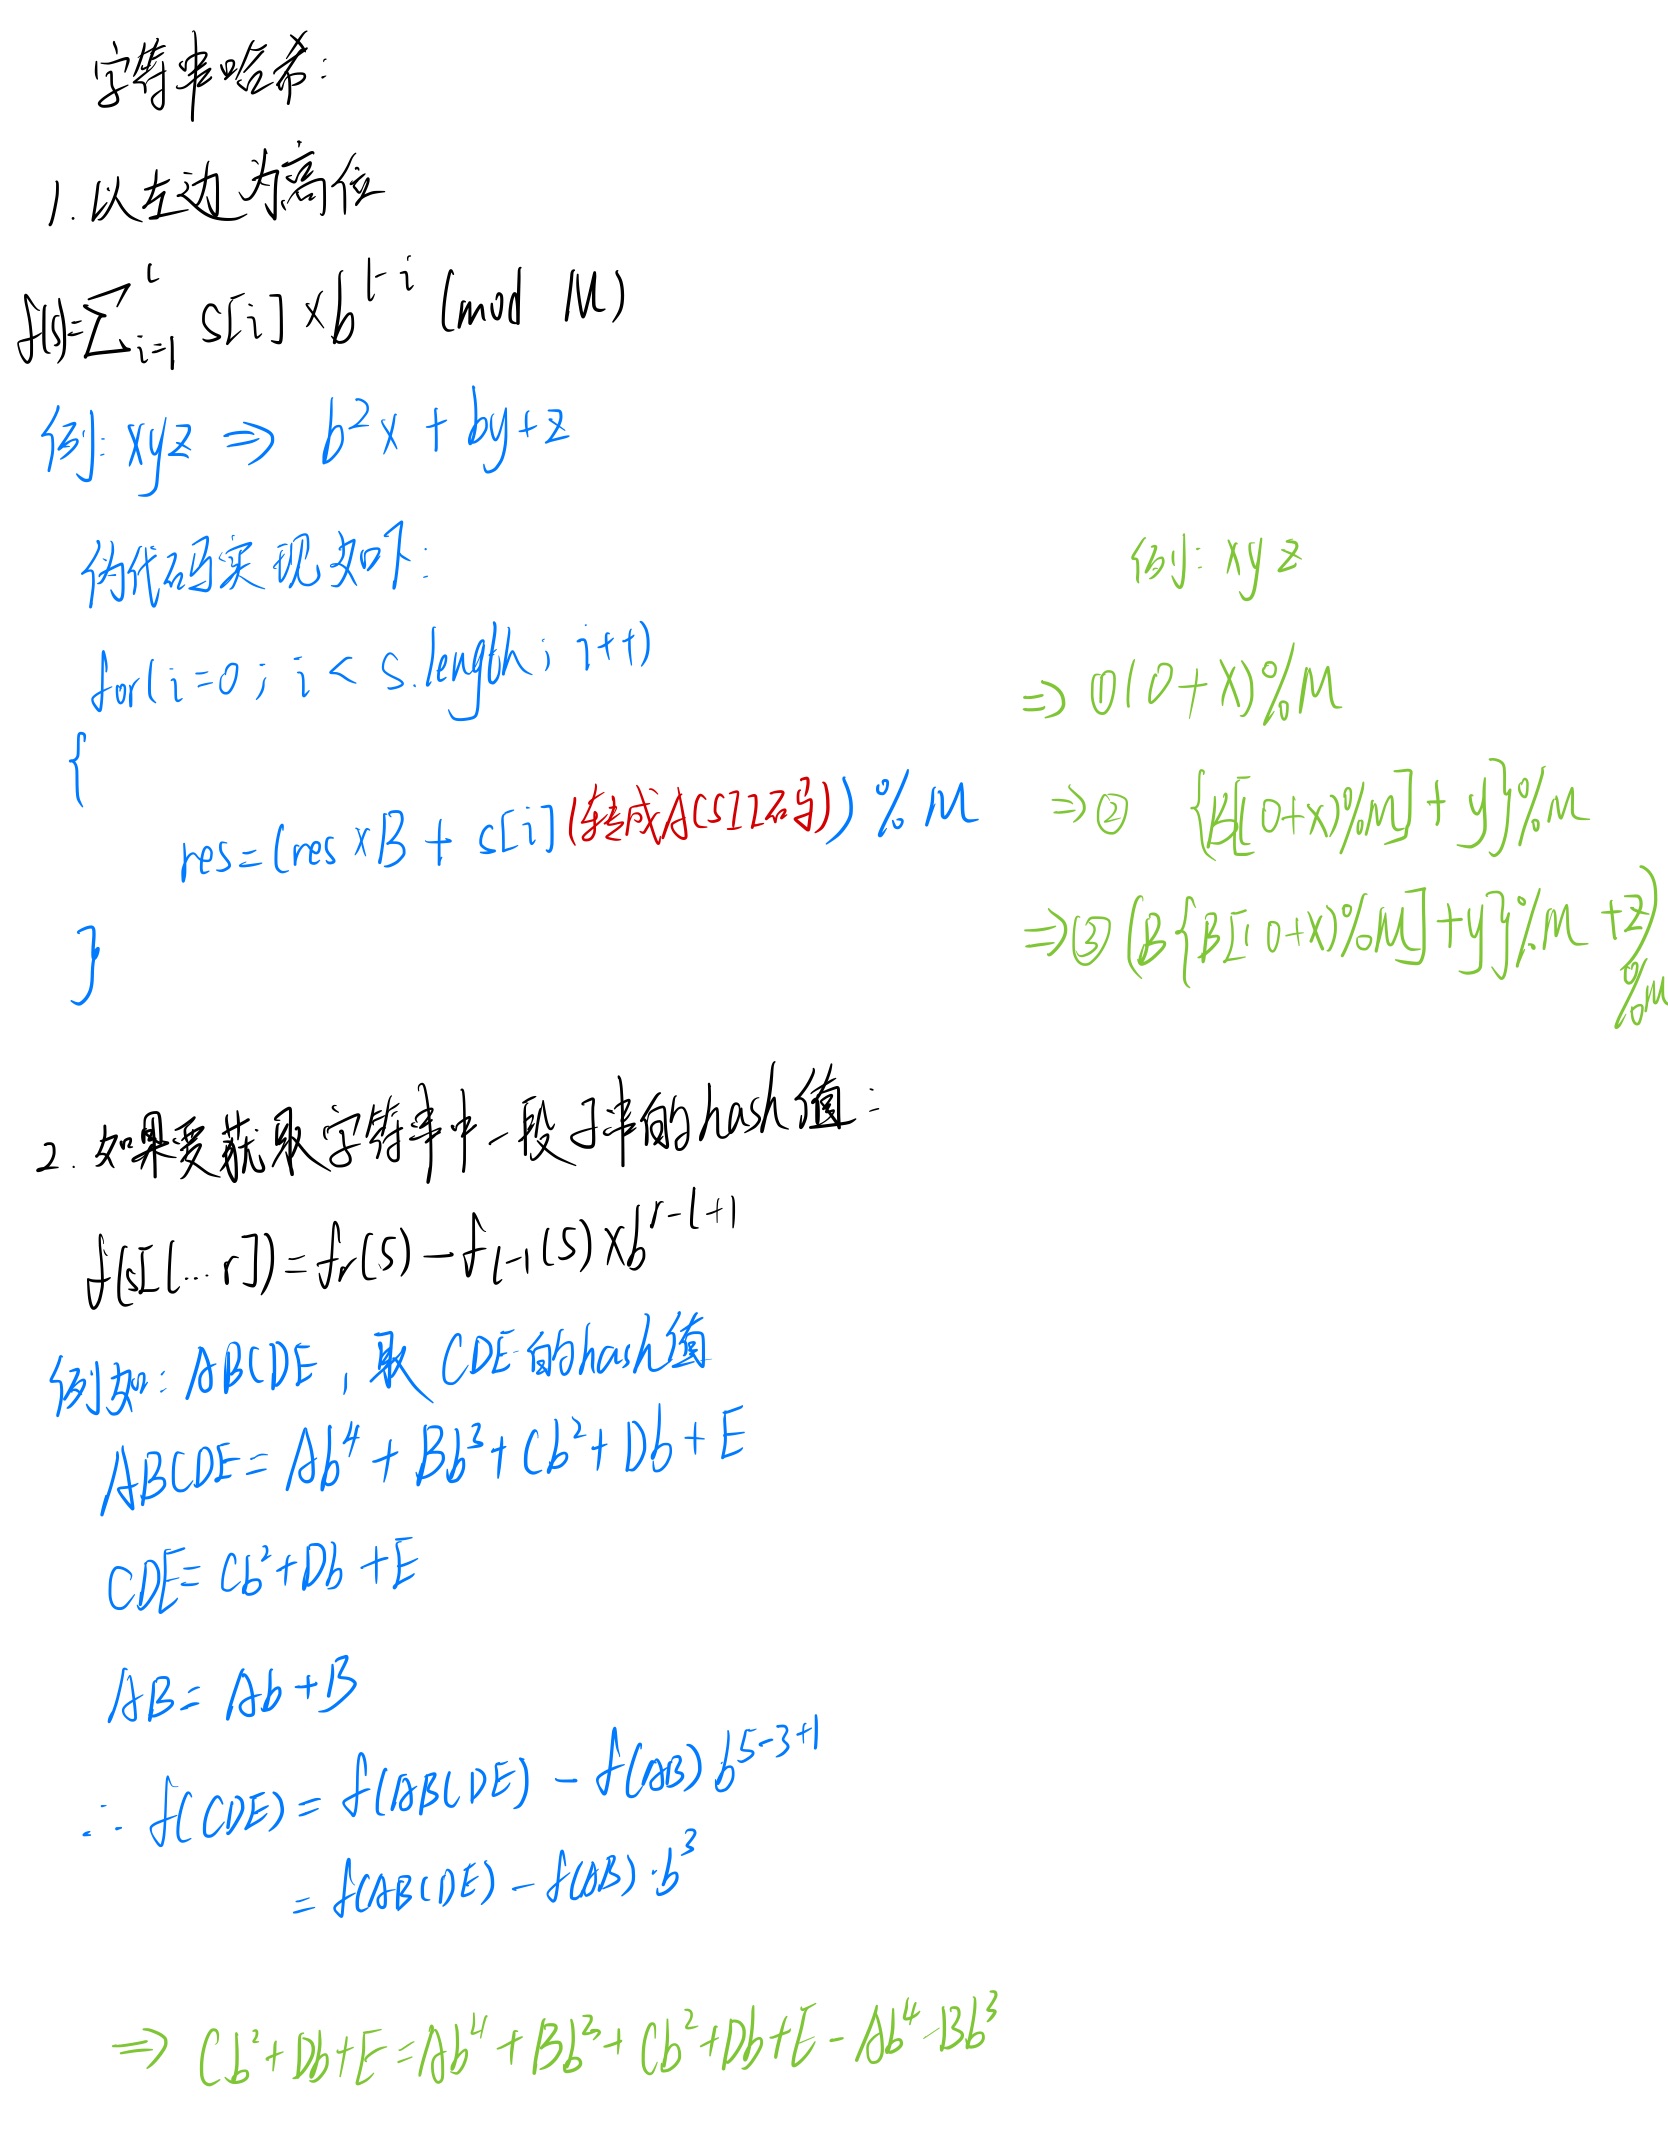 字符串哈希:
1. 以左边为高位
f(s)=∑_{i=1}^{l} s[i]×b^{l-i} (mod M)
例: xyz ⇒ b²x + by+z
伪代码实现如下:
for(i=0; i < s.length; i++)
{
res=(res×B + s[i](转成ASCII码)) % M
}
例: xyz
⇒ ①(0+x)%M
⇒② {B[(0+x)%M]+y}%M
⇒③ (B{B[(0+x)%M]+y}%M +z)
%M
2. 如果要获取字符串中一段子串的hash值:
f(s[l...r])=f_r(s)-f_{l-1}(s)×b^{r-l+1}
例如: ABCDE, 取 CDE的hash值
ABCDE= Ab⁴ + Bb³+Cb²+Db+E
CDE= Cb²+Db+E
AB= Ab+B
∴ f(CDE)= f(ABCDE) - f(AB) b^{5-3+1}
= f(ABCDE) - f(AB)·b³
⇒ Cb²+Db+E=Ab⁴+Bb³+Cb²+Db+E-Ab⁴-Bb³